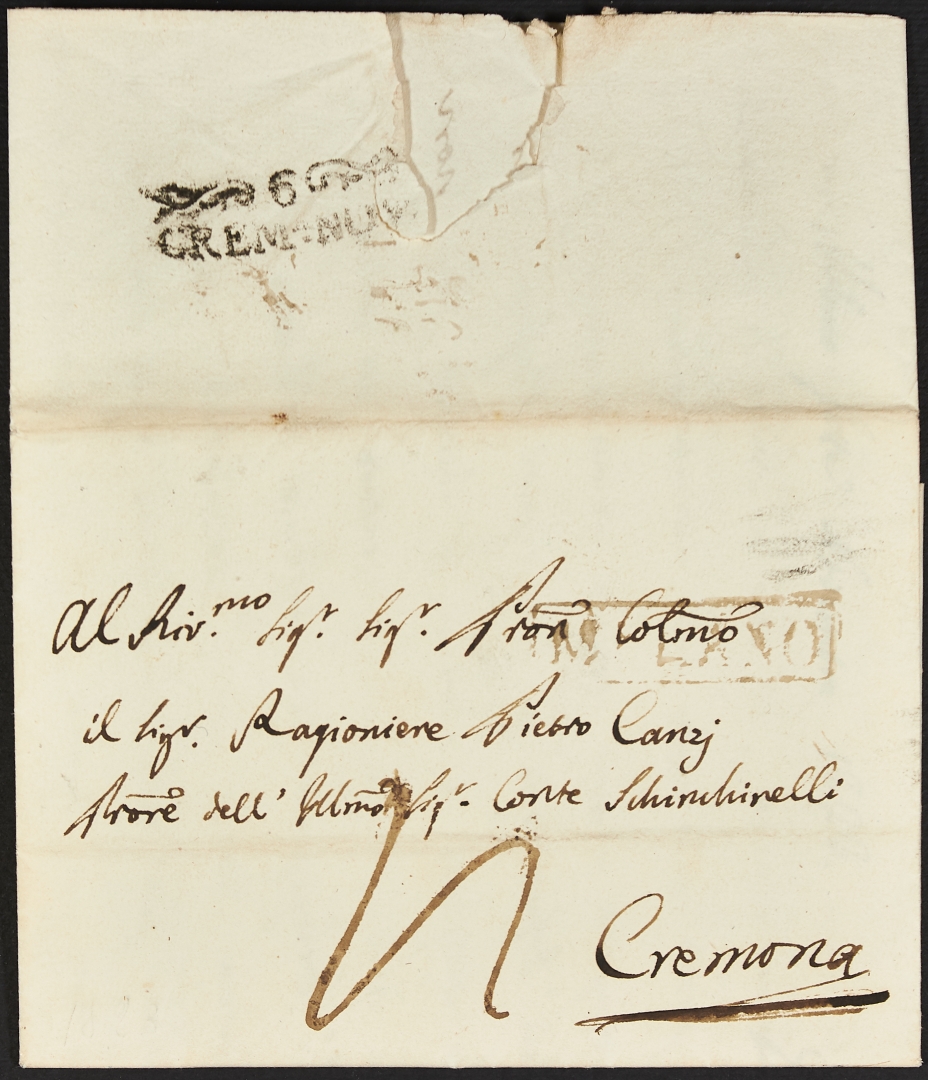 6
CREM. NOV.
Al Riv.mo Sigr. Sigr. Pron Colmo
MILANO
il Sigr. Ragioniere Pietro Canzj
Prore dell' Illmo Sigr. Conte Schinchinelli
Cremona